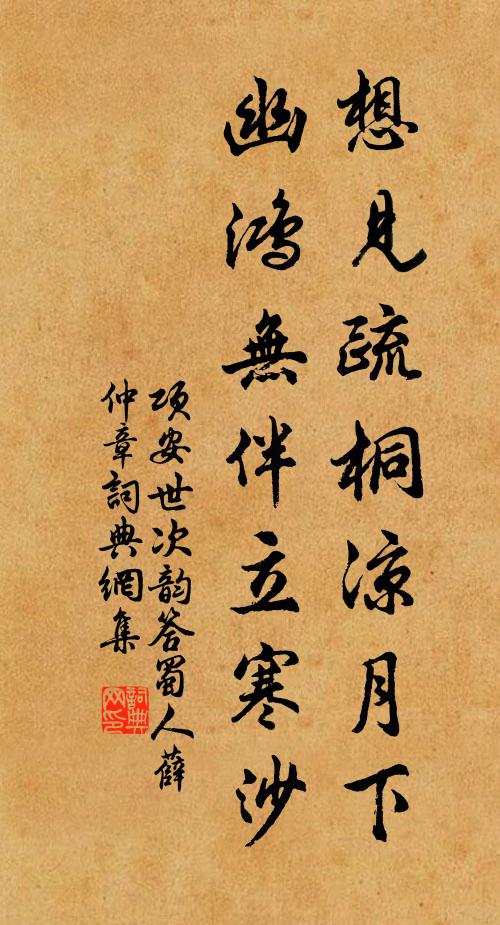 想見疏桐涼月下
幽鴻無伴立寒沙
項安世次韵答蜀人薛
仲章詞典網集
詞典
网印